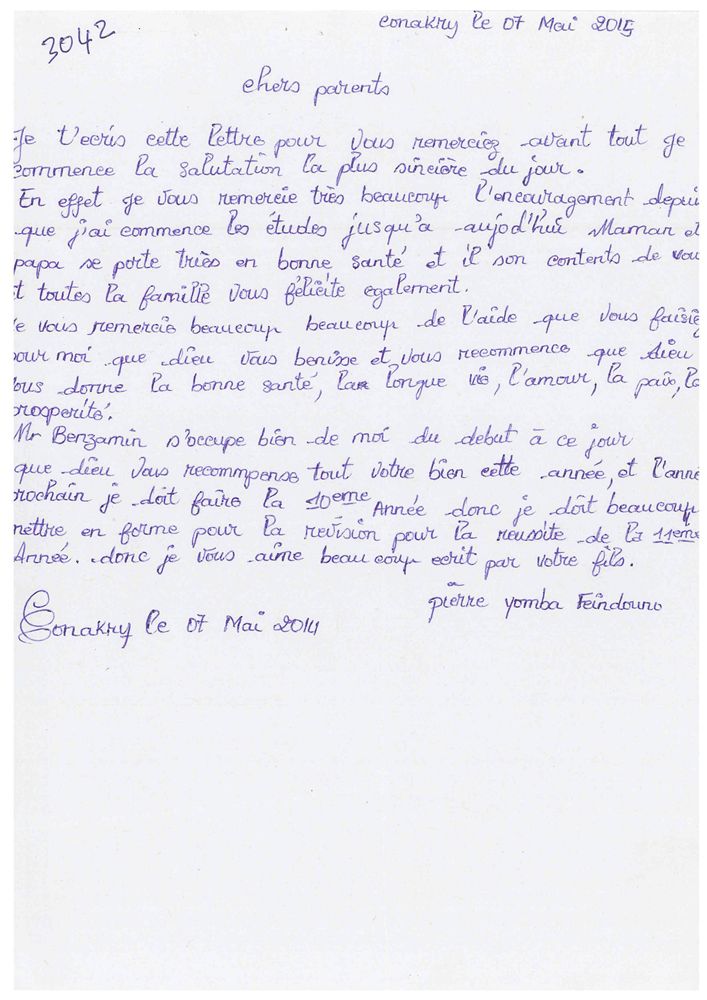 3042
Conakry le 07 Mai 2015
chers parents
Je t'ecris cette lettre pour vous remerciez avant tout ge
commence la salutation la plus sincière du jour.
En effet ge vous remercie très beaucoup l'encouragement depui
que j'ai commence les études jusqu'a aujod'hui Maman et
papa se porte très en bonne santé et il son contents de vou
t toutes la famille vous félicite egalement.
e vous remercie beaucoup beaucoup de l'aide que vous faisiez
our moi que dieu vous benisse et vous recommence que dieu
ous donne la bonne santé, la longue vie, l'amour, la paix, la
prosperité.
Mr Benzamin s'occupe bien de moi du debut à ce jour
que dieu vous recommpense tout votre bien cette année, et l'anné
rochain je doit faire la 10eme Année donc je doit beaucoup
mettre en forme pour la revision pour la reussite de la 11eme
Année. donc je vous aime beaucoup ecrit par votre fils.
pierre yomba Feindouno
Conakry le 07 Mai 2014